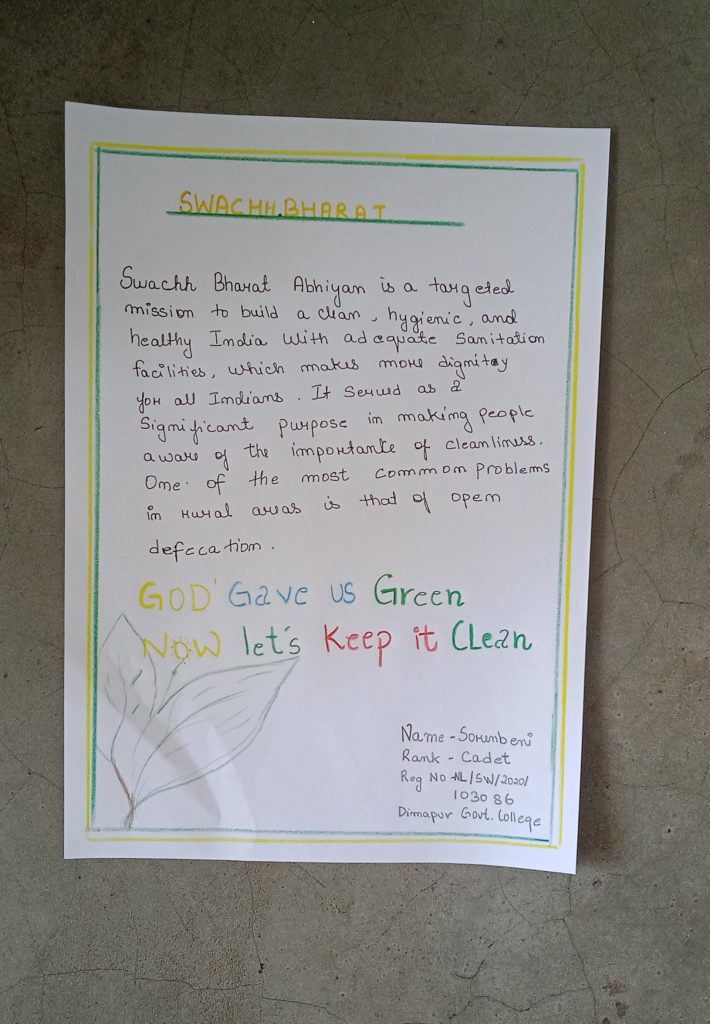 SWACHH.BHARAT
Swachh Bharat Abhiyan is a targeted
mission to build a clean, hygienic, and
healthy India with adequate sanitation
facilities, which makes more dignitey
for all Indians. It served as a
significant purpose in making people
aware of the importante of cleanliness.
One. of the most common problems
in rural areas is that of open
defecation.
GOD' Gave us Green
NOW let's Keep it Clean
Name - Sorenbeni
Rank - Cadet
Reg NO - NL/SW/2020/
103086
Dimapur Govt. College